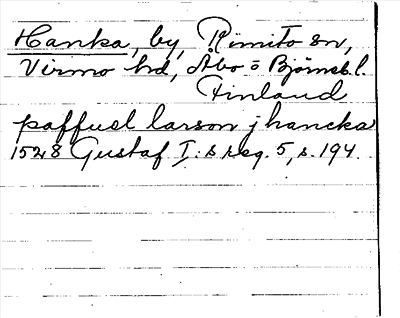 Hanka, by, Rimito sn,
Virmo hd, Åbo o Björneb. l.
Finland
paffuel larson j hancka
1528 Gustaf I:s reg. 5, s. 194.